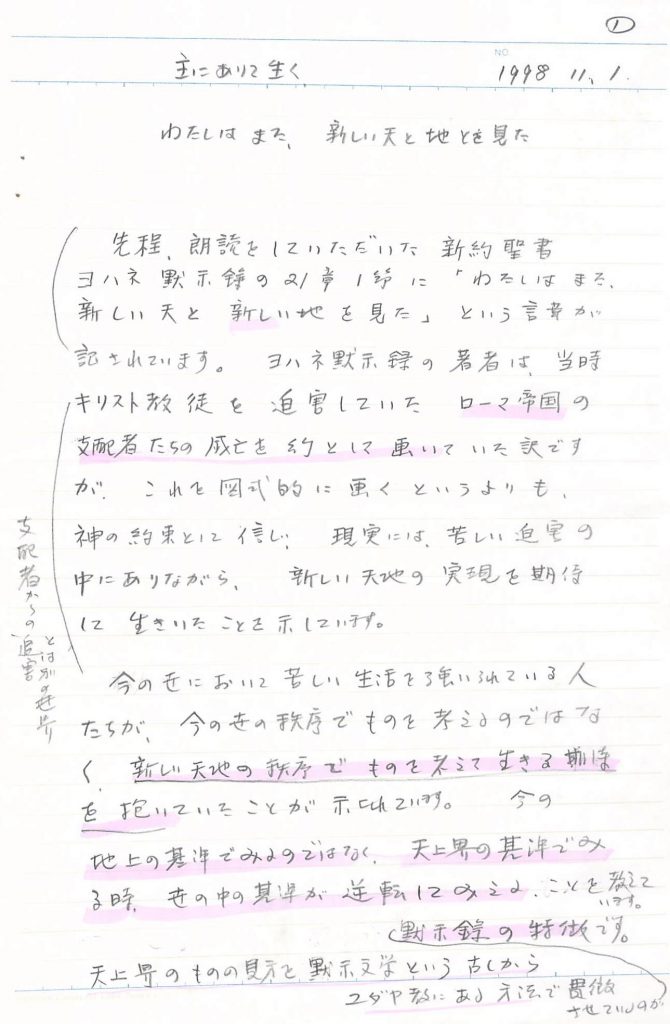 ①
主にありて生く
NO.
1998 11. 1.
わたしは また、新しい天と地とを見た
先程、朗読をしていただいた 新約聖書
ヨハネ黙示録の21章1節に「わたしはまた、
新しい天と 新しい地を見た」という言葉が
記されています。 ヨハネ黙示録の著者は、当時
キリスト教徒を 迫害していた ローマ帝国の
支配者たちの 滅亡を 約として 画いていた訳です
が、これを図式的に画くというよりも、
神の約束として信じ、 現実には、苦しい迫害の
中にありながら、 新しい天地の 実現を期待
して 生きいたことを示しています。
今の世において苦しい生活を強いられている人
たちが、今の世の秩序でものを考えるのではな
く、新しい天地の秩序で ものを考えて生きる期待
を 抱いていたことが 示されています。 今の
地上の基準でみるのではなく、天上界の基準でみ
る時、世の中の基準が 逆転してみえる、ことを教えて
います。
黙示録の特徴です。
天上界のものの見方を黙示文学という 古くから
ユダヤ教にある方法で貫徹
させているのが
支配者からの迫害
とはがの世界